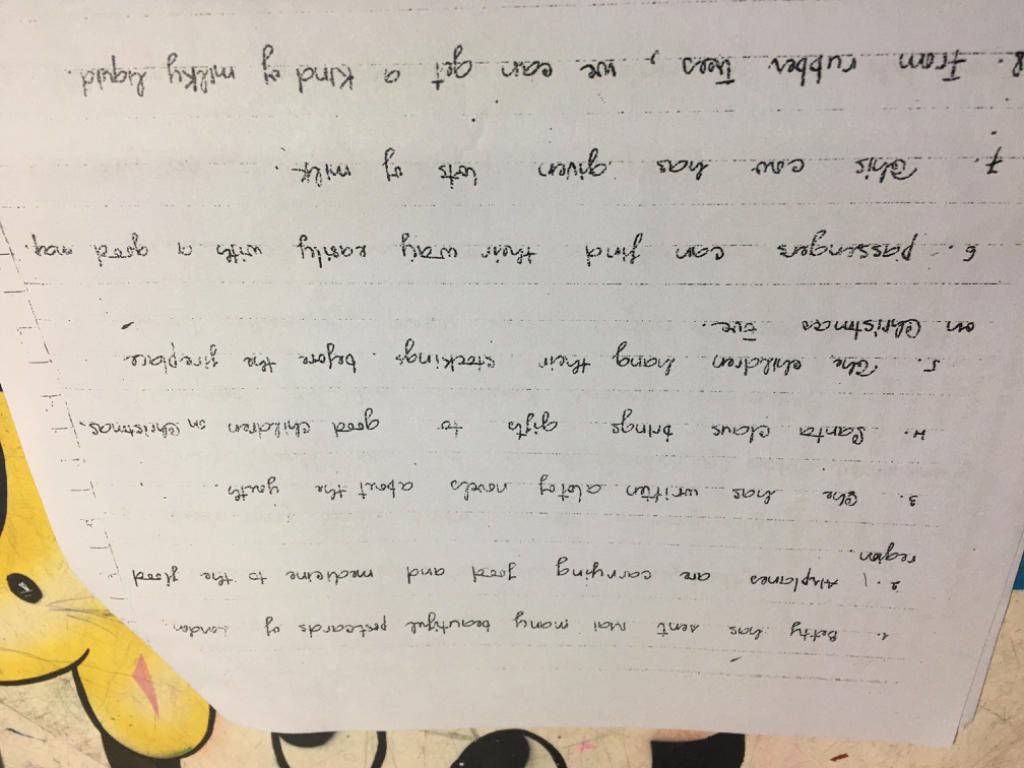 1. Betty has sent Mai many beautiful postcards of London.
2. Airplanes are carrying food and medicine to the flood
region.
3. She has written a lot of novels about the youth.
4. Santa claus brings gifts to good children on Christmas.
5. The children hang their stockings before the fireplace
on Christmas Eve.
6. passengers can find their way easily with a good map.
7. This cow has given lots of milk.
8. From rubber trees, we can get a kind of milky liquid.